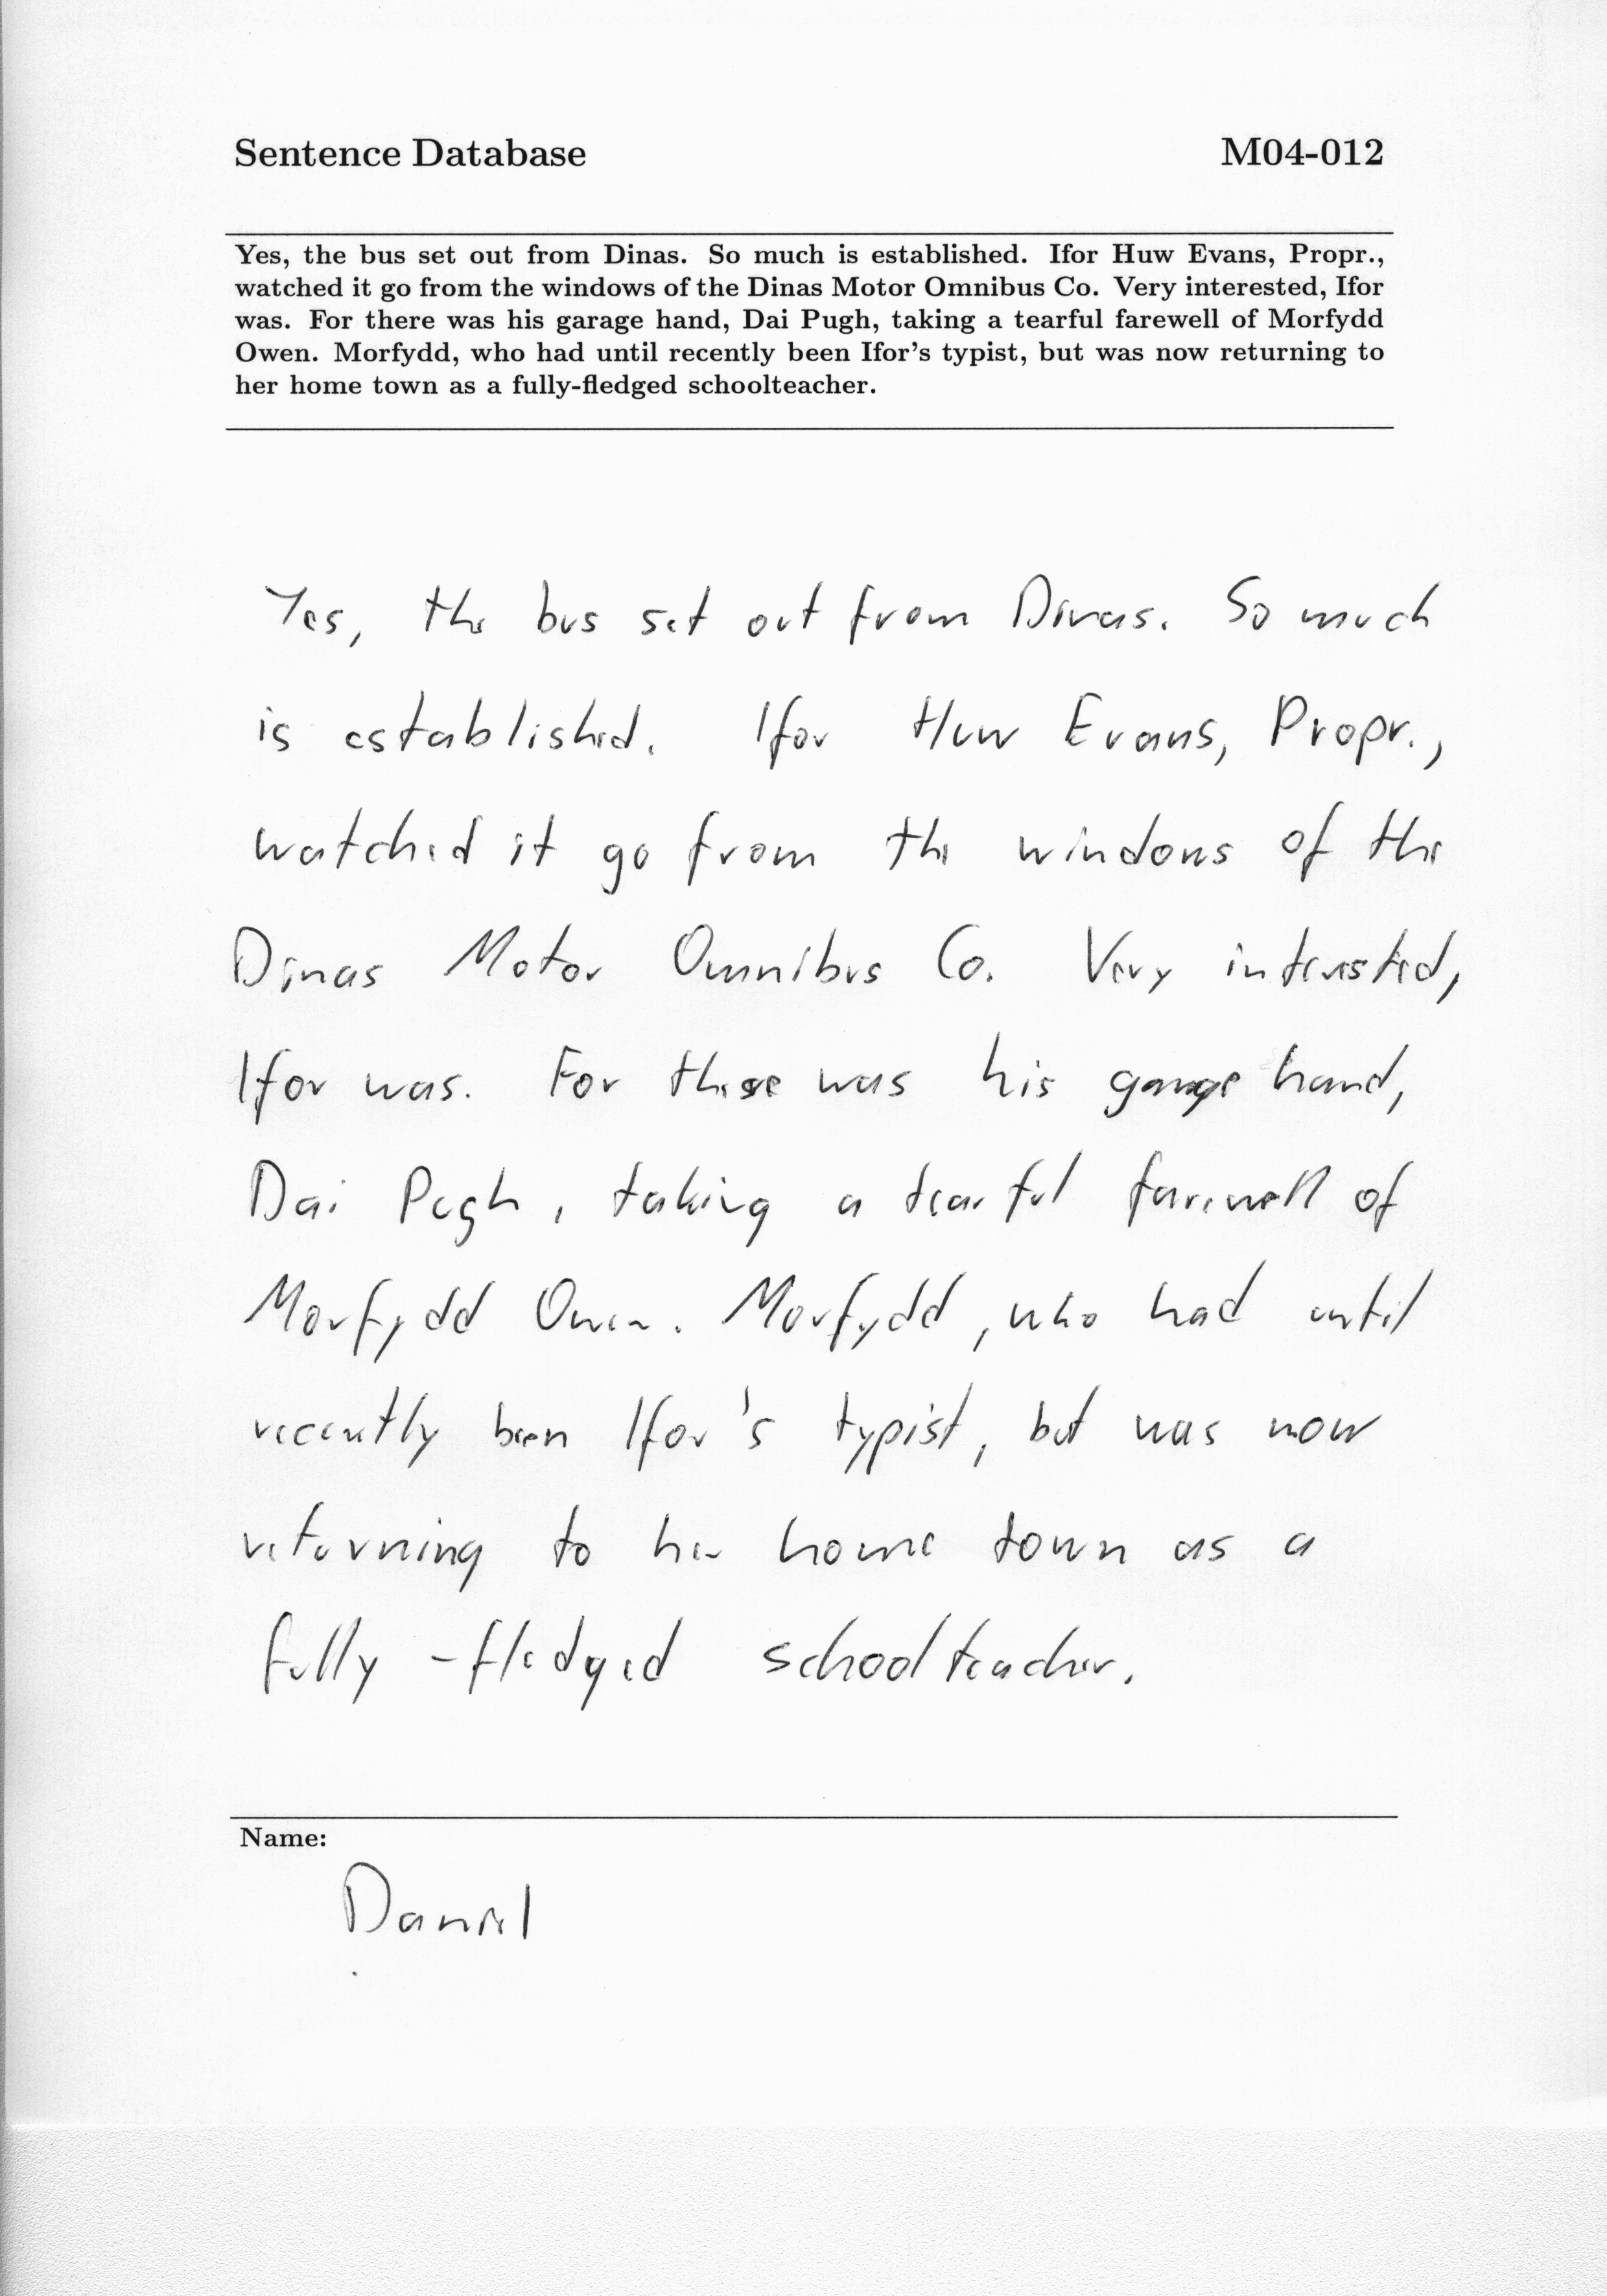 Sentence Database M04-012
Yes, the bus set out from Dinas. So much is established. Ifor Huw Evans, Propr.,
watched it go from the windows of the Dinas Motor Omnibus Co. Very interested, Ifor
was. For there was his garage hand, Dai Pugh, taking a tearful farewell of Morfydd
Owen. Morfydd, who had until recently been Ifor's typist, but was now returning to
her home town as a fully-fledged schoolteacher.
Yes, the bus set out from Dinas. So much
is established. Ifor Huw Evans, Propr.,
watched it go from the windows of the
Dinas Motor Omnibus Co. Very interested,
Ifor was. For there was his garage hand,
Dai Pugh, taking a tearful farewell of
Morfydd Owen. Morfydd, who had until
recently been Ifor's typist, but was now
returning to her home town as a
fully-fledged schoolteacher.
Name:
Daniel